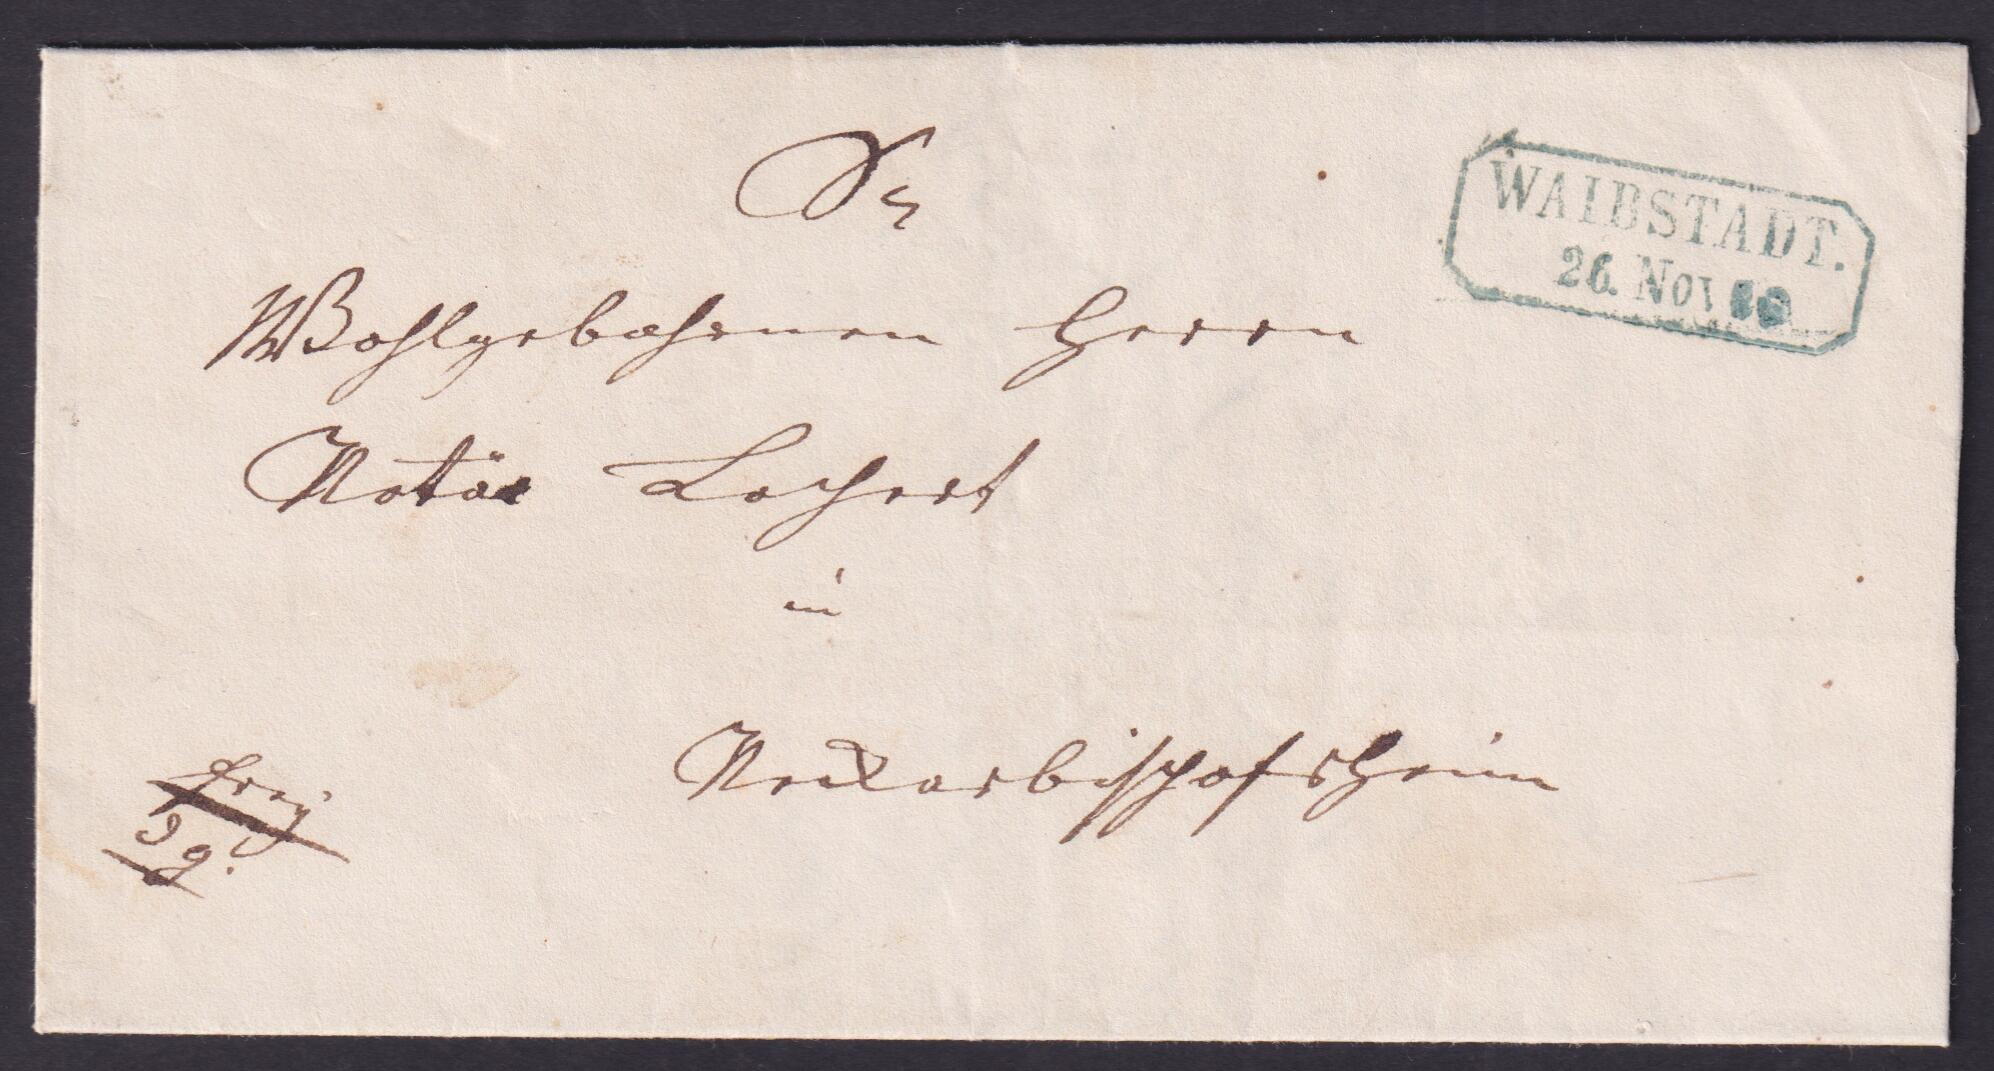 Sr
WAIBSTADT.
26. Nov
Wohlgebohrnen Herrn
Notär Lochert
in
Neckarbischofsheim
frey